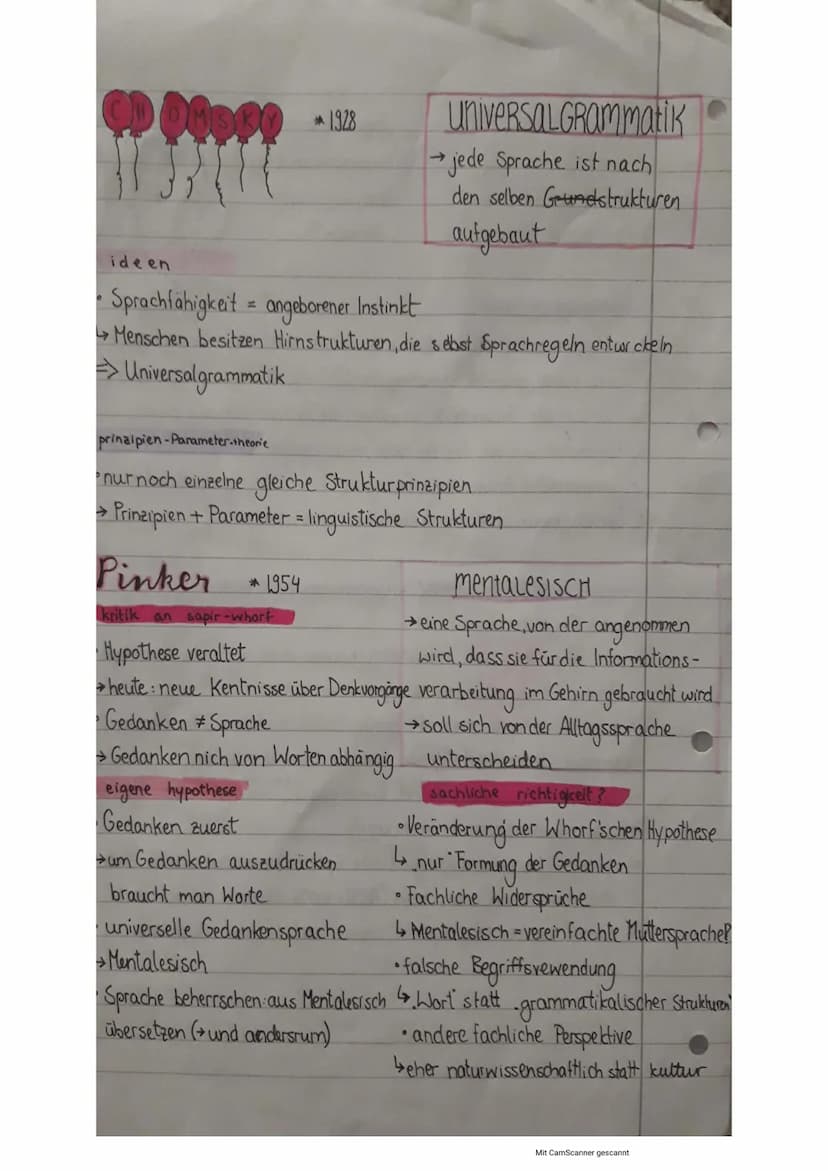 CHOMSKY * 1928
UNIVERSALGRAMMATIK
→ jede Sprache ist nach
den selben Grundstrukturen
aufgebaut
ideen
• Sprachfähigkeit = angeborener Instinkt
↳ Menschen besitzen Hirnstrukturen, die selbst Sprachregeln entwickeln
=> Universalgrammatik
prinzipien-Parameter-theorie
• nur noch einzelne gleiche Strukturprinzipien
→ Prinzipien + Parameter = linguistische Strukturen
Pinker * 1954
kritik an sapir-whorf
• Hypothese veraltet
→ heute: neue Kentnisse über Denkvorgänge
• Gedanken ≠ Sprache
→ Gedanken nich von Worten abhängig
MENTALESISCH
→ eine Sprache, von der angenommen
wird, dass sie für die Informations-
verarbeitung im Gehirn gebraucht wird
→ soll sich von der Alltagssprache
unterscheiden
eigene hypothese
• Gedanken zuerst
→ um Gedanken auszudrücken
braucht man Worte
• universelle Gedankensprache
→ Mentalesisch
• Sprache beherrschen: aus Mentalesisch
übersetzen (→ und andersrum)
sachliche richtigkeit?
• Veränderung der Whorf'schen Hypothese
↳ „nur" Formung der Gedanken
• Fachliche Widersprüche
↳ Mentalesisch = vereinfachte Muttersprache?
• falsche Begriffsvewendung
↳ „Wort" statt „grammatikalischer Strukturen"
• andere fachliche Perspektive
↳ eher naturwissenschaftlich statt kultur
Mit CamScanner gescannt